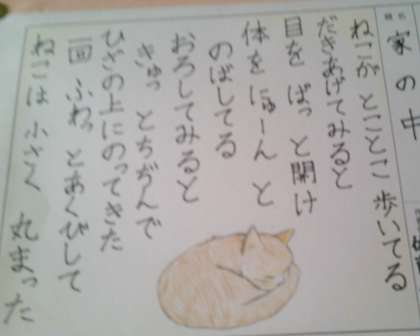 題名
家の中
ねこが とことこ 歩いてる
だきあげてみると
目を ぱっ と開け
体を にゅーん と
のばしてる
おろしてみると
きゅっ とちぢんで
ひざの上にのってきた
一回 ふわっ とあくびして
ねこは 小さく 丸まった